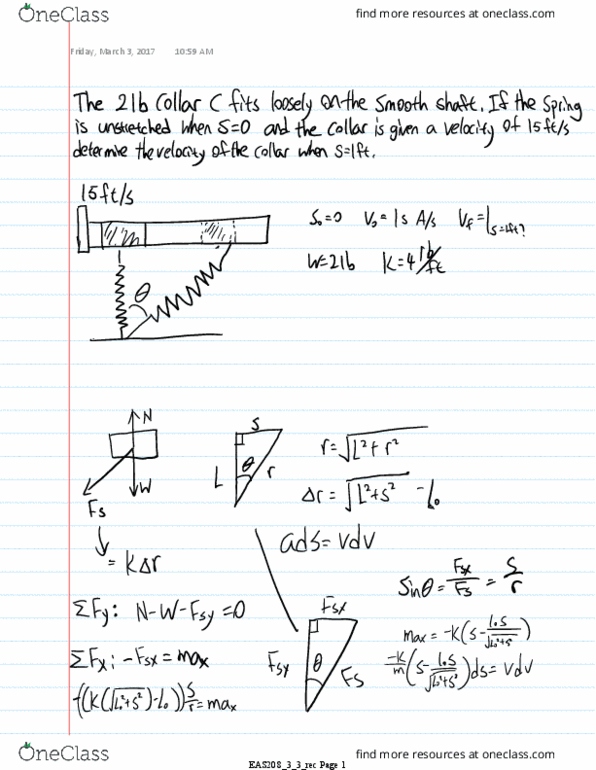 OneClass
find more resources at oneclass.com
Friday, March 3, 2017 10:59 AM
The 2lb collar C fits loosely on the smooth shaft. If the spring
is unstretched when S=0 and the collar is given a velocity of 15ft/s
determine the velocity of the collar when S=1ft.
15ft/s
S₀=0 V₀=15 A/s Vf=|s=1ft?
W=2lb K=4 lb/ft
θ
N
W
Fs
= KΔr
S
L
θ
r
r=√(L²+r²)
Δr = √(L²+s²) - L₀
ads=vdv
Sinθ = Fsx/Fs = S/r
ΣFy: N-W-Fsy=0
ΣFx: -Fsx=max
-(K(√(L₀²+s²)-L₀))S/r=max
Fsx
Fsy
θ
Fs
max=-K(s-L₀s/√(L₀²+s²))
-K/m(s-L₀s/√(L₀²+s²))ds=vdv
OneClass
find more resources at oneclass.com
EAS208_3_3_rec Page 1